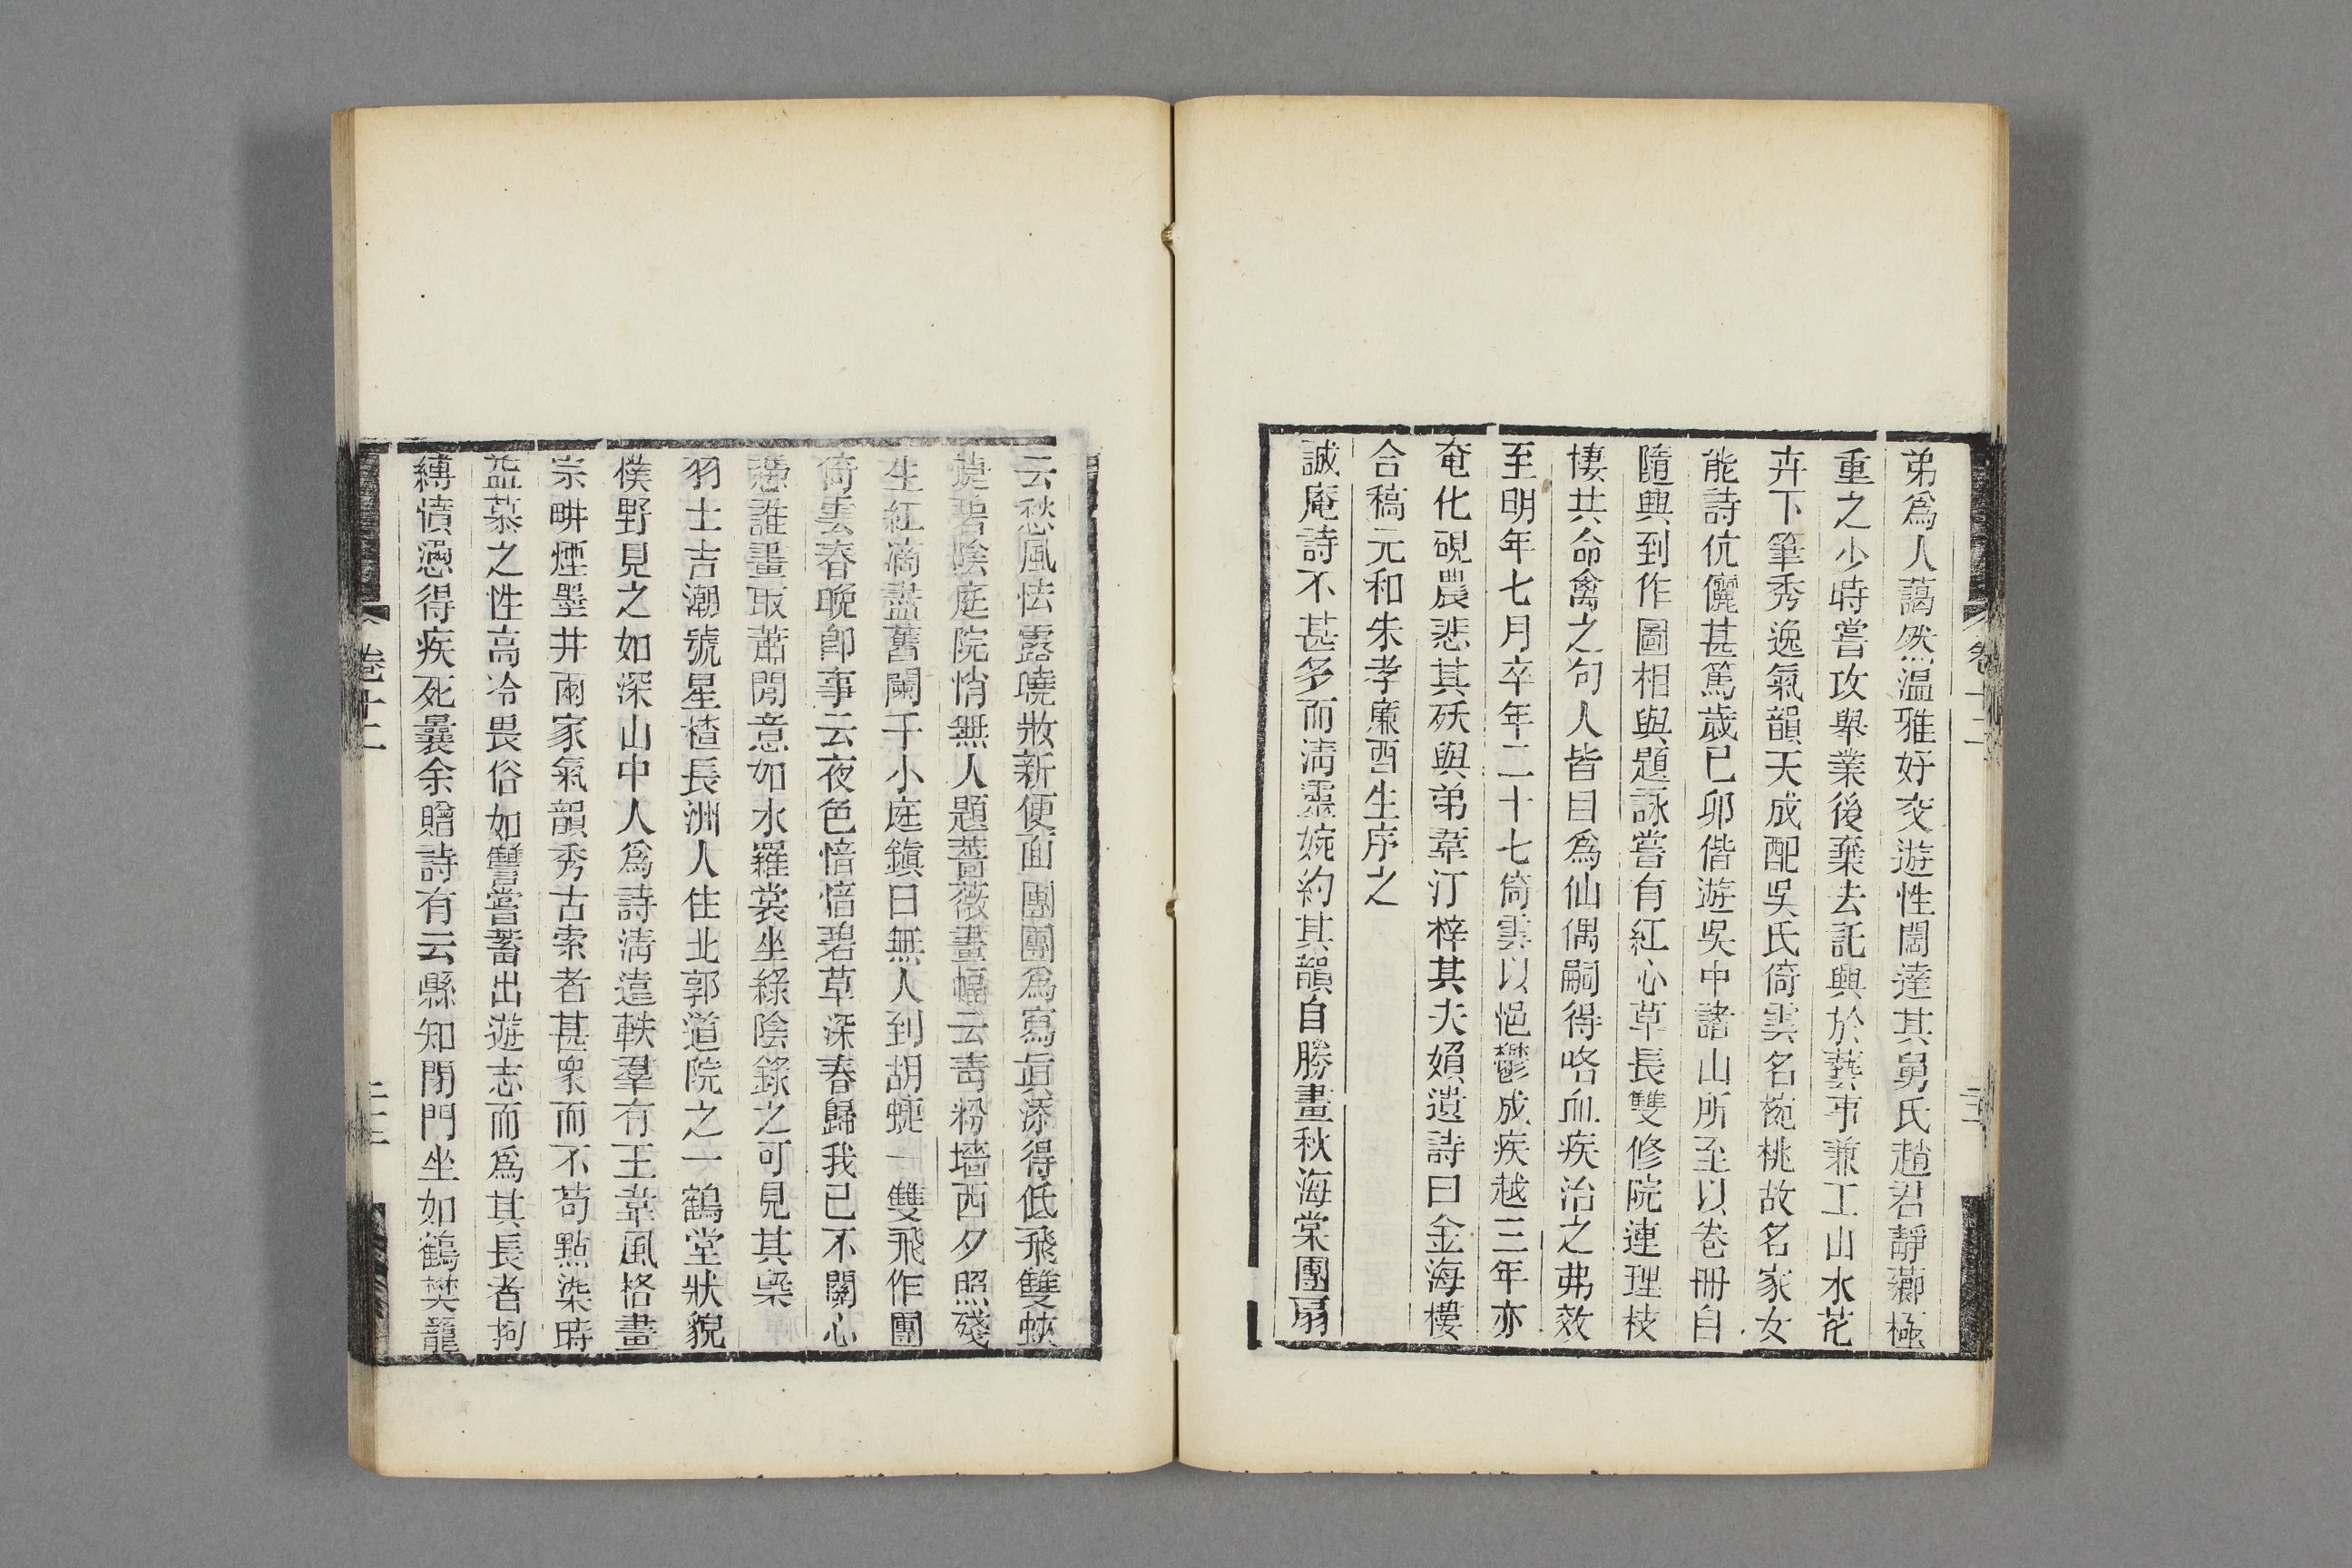 弟爲人藹然溫雅好交遊性闊達其舅氏趙君靜薌極
重之少時嘗攻舉業後棄去託興於藝事兼工山水花
卉下筆秀逸氣韻天成配吳氏倚雲名梡桃故名家女
能詩伉儷甚篤歲己卯偕遊吳中諸山所至以卷冊自
隨興到作圖相與題詠嘗有紅心草長雙修院連理枝
棲共命禽之句人皆目爲仙偶嗣得咯血疾治之弗效
至明年七月卒年二十七倚雲以悒鬱成疾越三年亦
奄化硯農悲其殀與弟葦汀梓其夫媍遺詩曰金海樓
合稿元和朱孝廉酉生序之
誠庵詩不甚多而淸靈婉約其韻自勝畫秋海棠團扇
云愁風怯露曉妝新便面團團爲寫眞添得低飛雙蛺
蜨碧陰庭院悄無人題薔薇畫幅云靑粉墻西夕照殘
生紅滴盡舊闌干小庭鎭日無人到胡蜨一雙飛作團
倚雲春晚卽事云夜色愔愔碧草深春歸我已不關心
憑誰畫取蕭閒意如水羅裳坐綠陰錄之可見其槩
羽士吉潮號星楂長洲人住北郭道院之一鶴堂狀貌
僕野見之如深山中人爲詩淸遠軼羣有王韋風格畫
宗畊煙墨井兩家氣韻秀古索者甚衆而不苟點染時
益慕之性高冷畏俗如讐嘗蓄出遊志而爲其長者拘
縛憤懣得疾死曩余贈詩有云縣知閉門坐如鶴樊籠
卷十二
卷十二